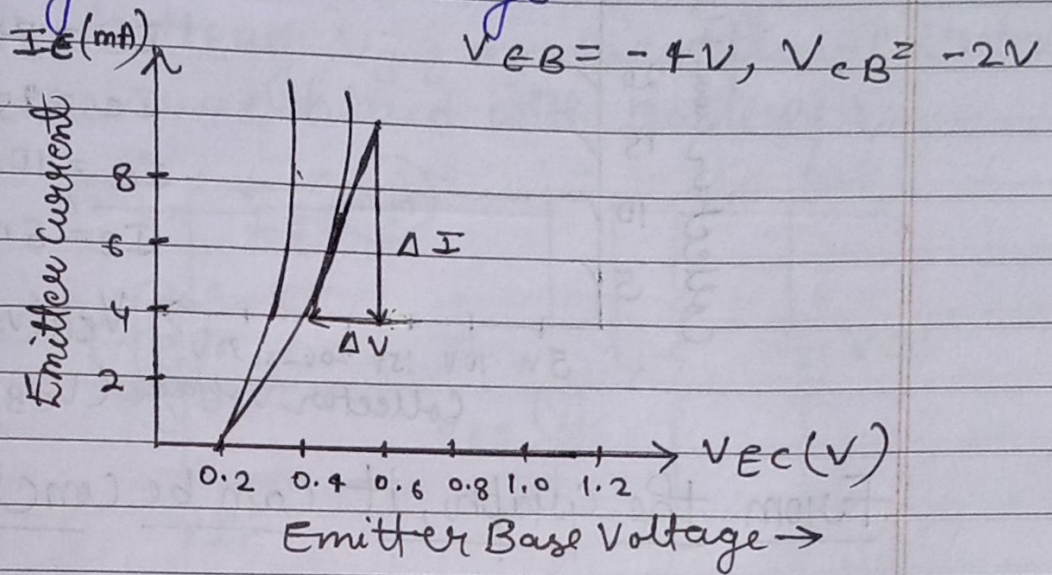 IE (mA)
VEB = -4V, VCB = -2V
Emitter Current
8
6
4
2
ΔI
ΔV
0.2 0.4 0.6 0.8 1.0 1.2
VEC (V)
Emitter Base Voltage →